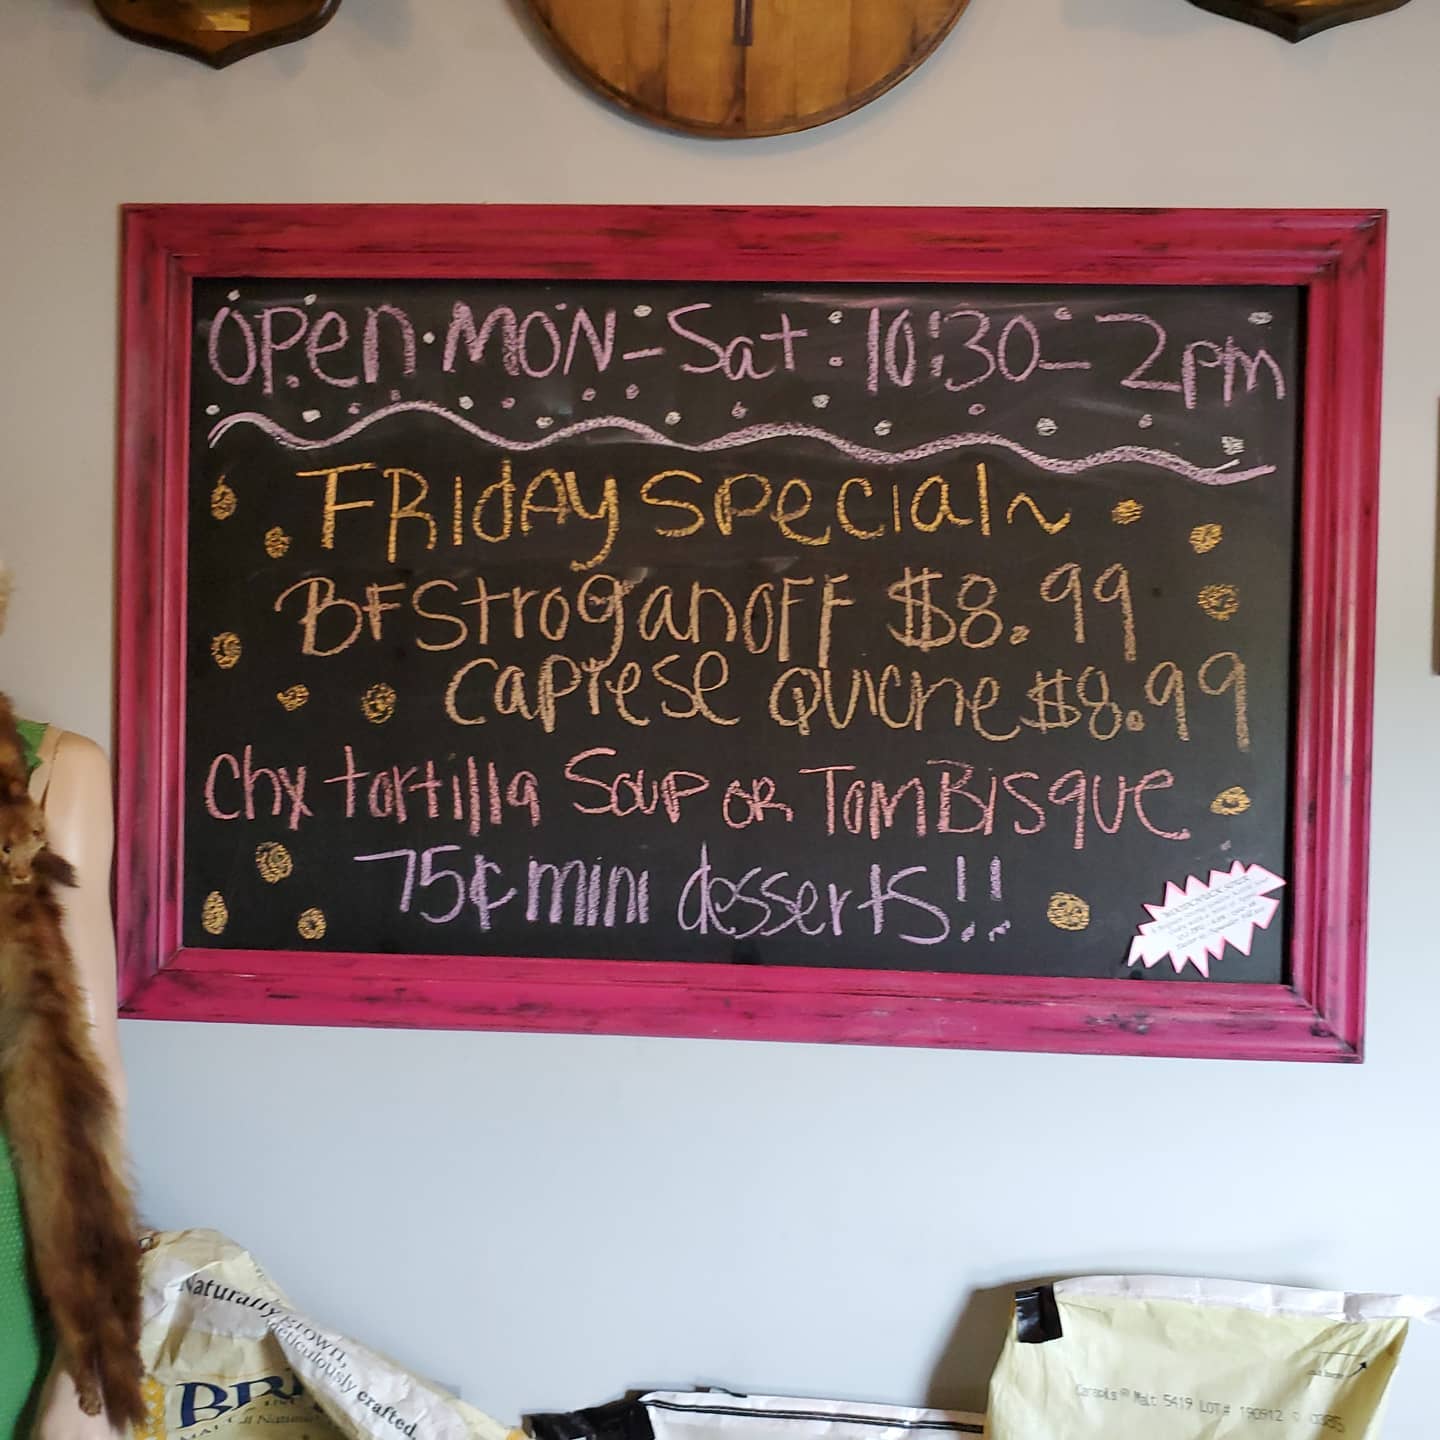 OPen MON-Sat: 10:30-2pm
FRidAy Special~
BF StroganOFF $8.99
caprese Quiche $8.99
Chx tortilla Soup OR Tom Bisque
75¢ mini desserts!!
Naturally grown,
meticulously crafted.
Carapils® Malt 5419 LOT# 190912